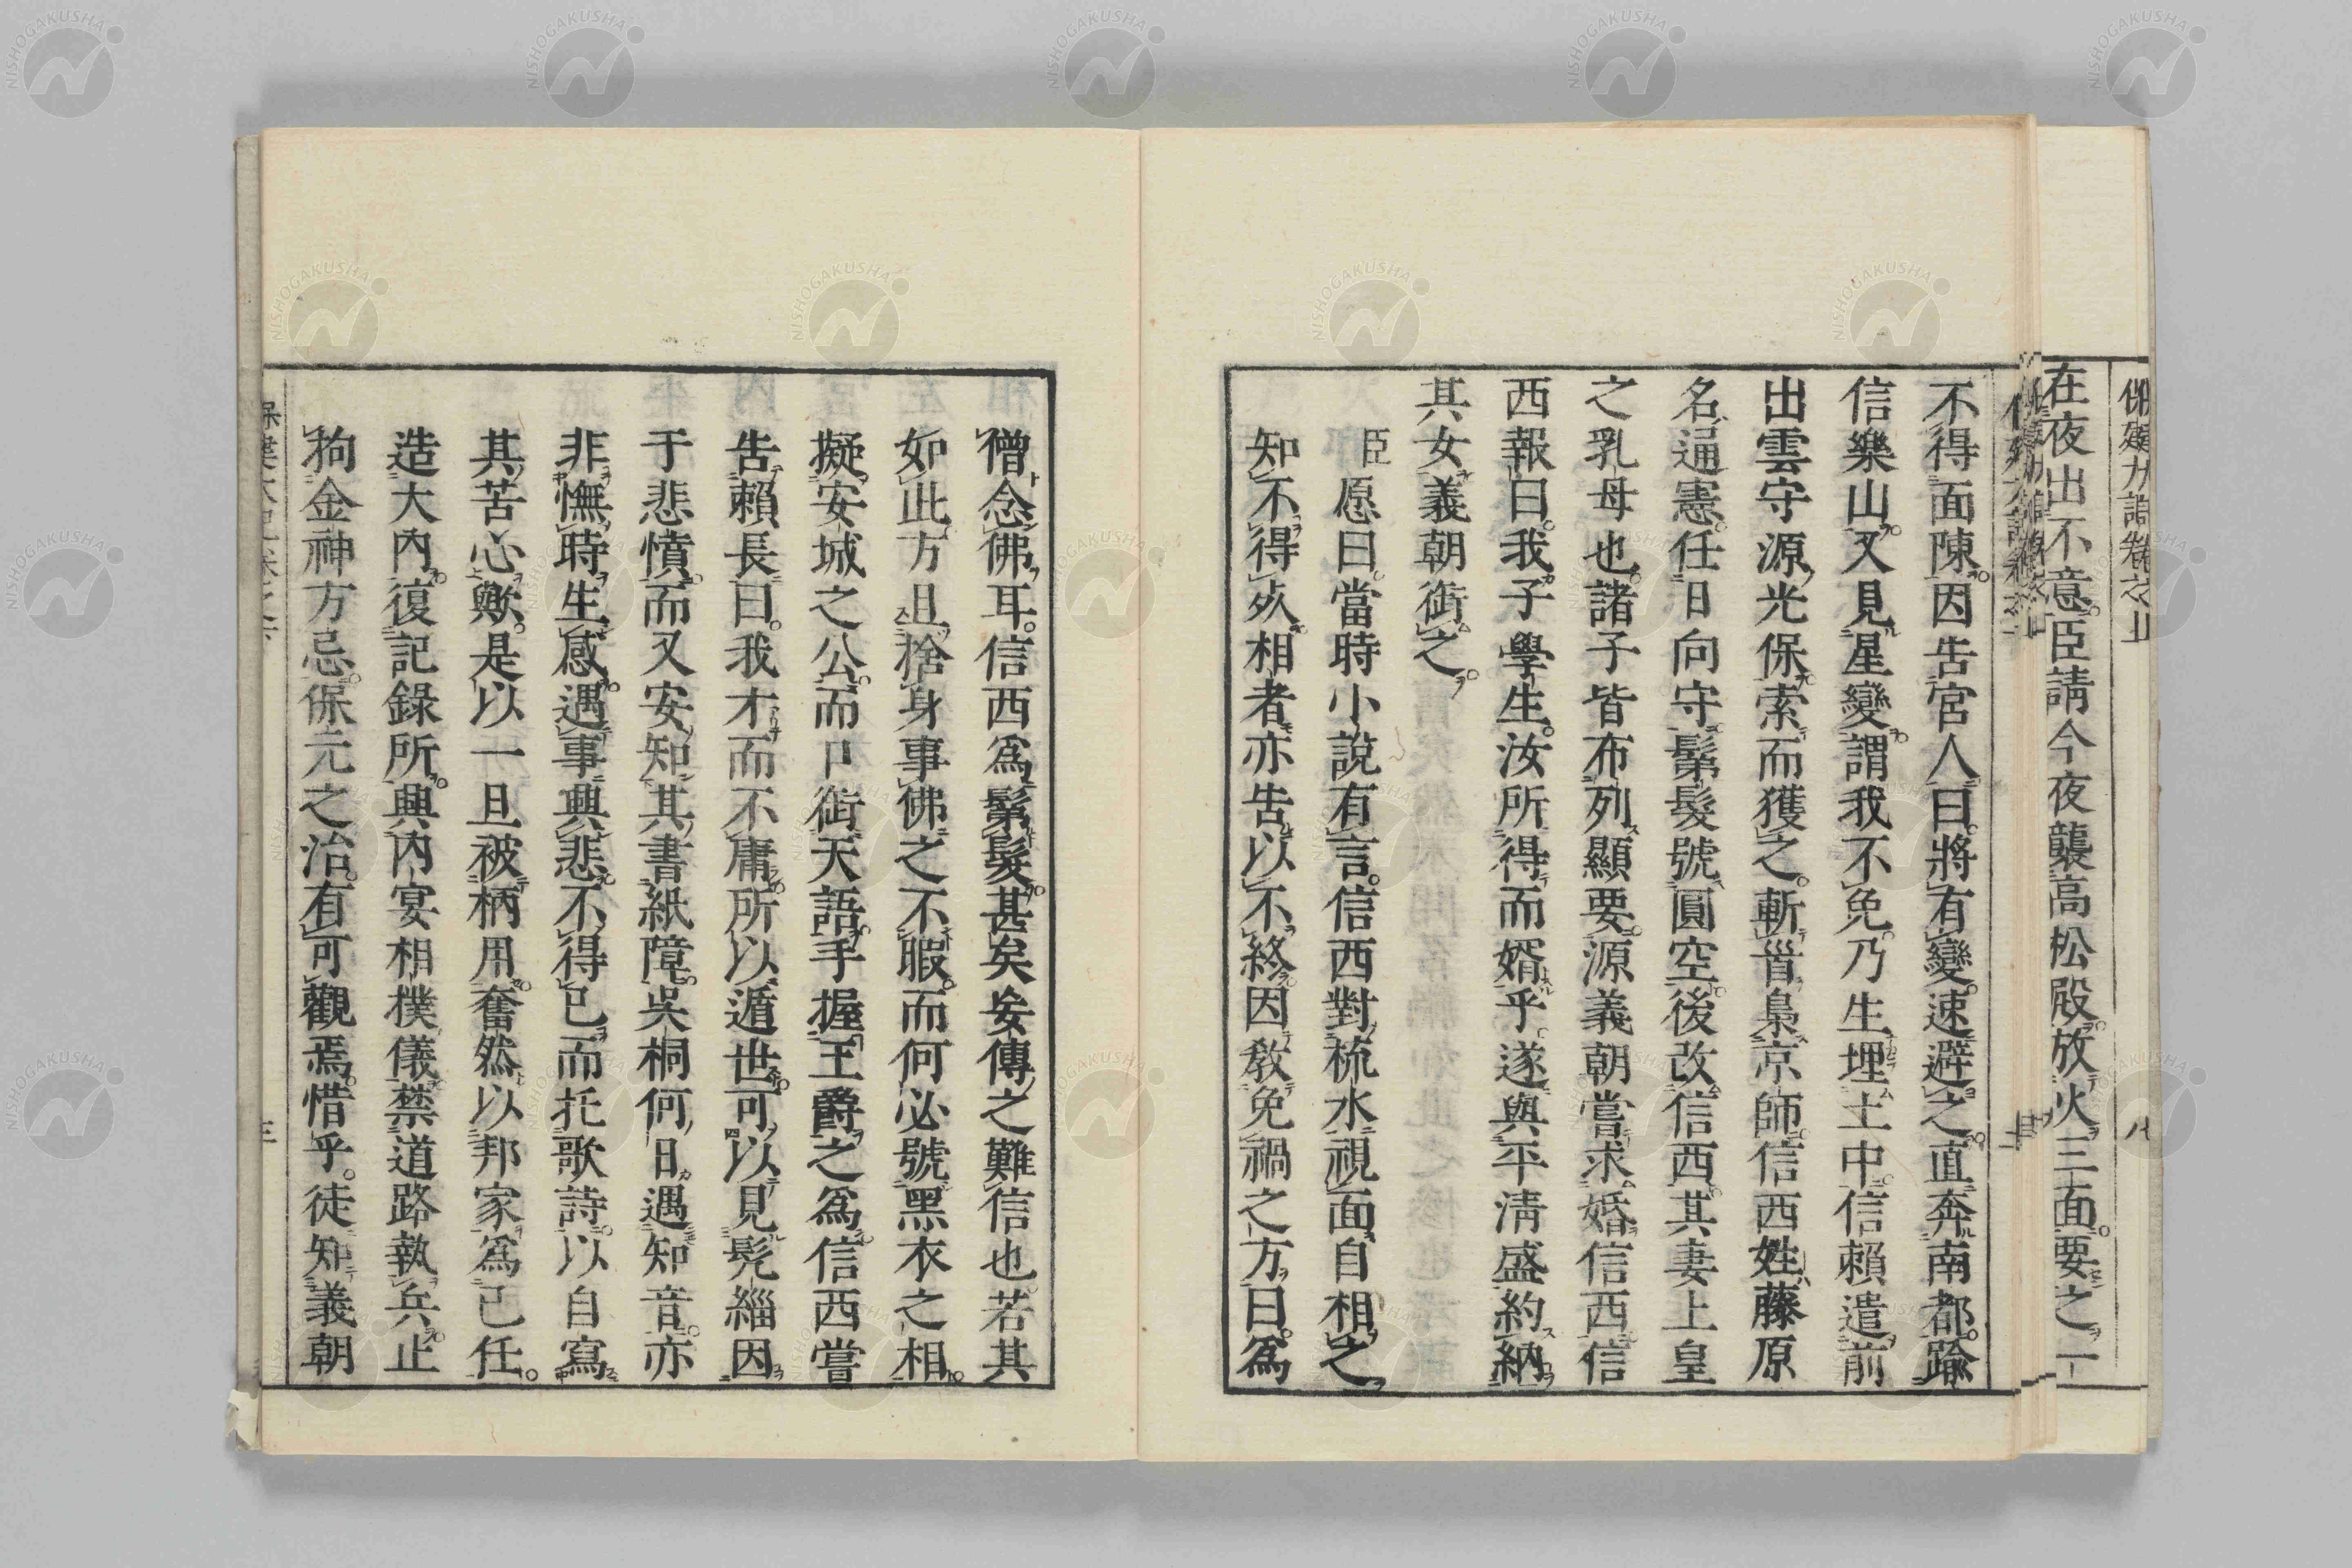 在夜出不意臣請今夜襲高松殿放火三面要之一
不得面陳因告宮人曰將有變速避之直奔南都踰
信樂山又見星變謂我不免乃生埋土中信賴遣前
出雲守源光保索而獲之斬首梟京師信西姓藤原
名通憲任日向守鬀髮號圓空後改信西其妻上皇
之乳母也諸子皆布列顯要源義朝嘗求婚信西信
西報曰我子學生汝所得而婿乎遂與平淸盛約納
其女義朝銜之
臣愿曰當時小說有言信西對梳水視面自相之
知不得死相者亦告以不終因敎免禍之方曰爲
僧念佛耳信西爲鬀髮甚矣妄傳之難信也若其
如此方且捨身事佛之不暇而何必號黑衣之相
擬安城之公而口銜天語手握王爵之爲信西嘗
告賴長曰我才而不庸所以遁世可以見髡緇因
于悲憤而又安知其書紙障吳桐何日遇知音亦
非憮時生感遇事興悲不得已而托歌詩以自寫
其苦心歟是以一旦被柄用奮然以邦家爲己任
造大內復記錄所興內宴相撲儀禁道路執兵止
拘金神方忌保元之治有可觀焉惜乎徒知義朝